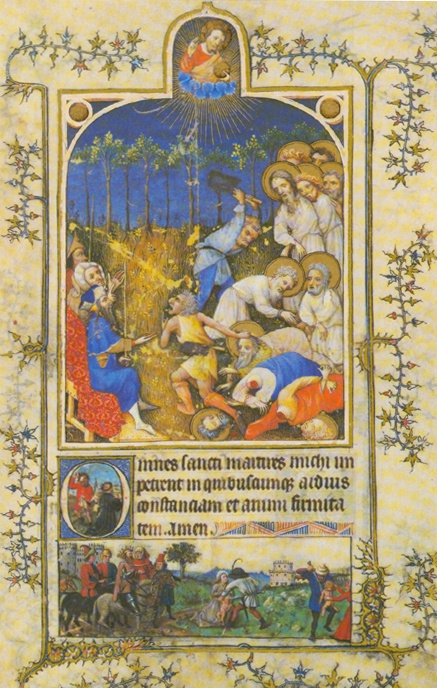 Omnes sancti martires michi im
petrent in quibuscunq arduis
constanciam et animi firmita
tem. Amen.